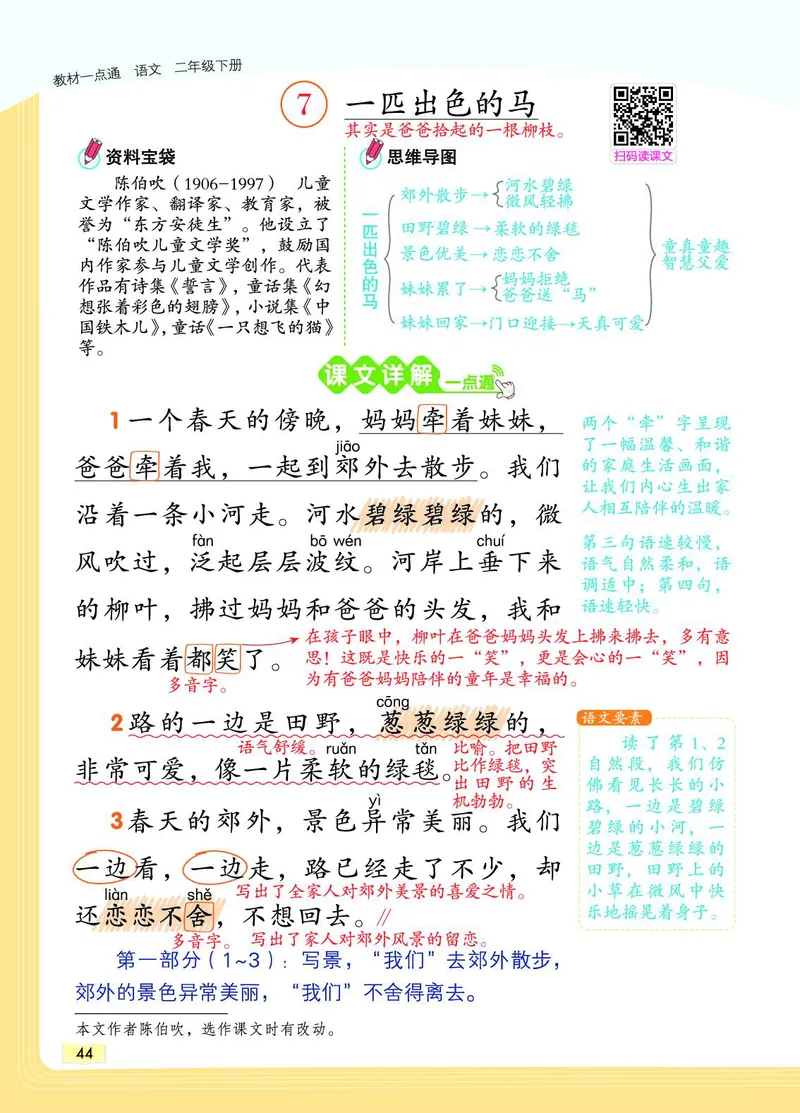 教材一点通 语文 二年级下册
7 一匹出色的马
其实是爸爸拾起的一根柳枝。
扫码读课文
资料宝袋
陈伯吹（1906-1997） 儿童
文学作家、翻译家、教育家，被
誉为“东方安徒生”。他设立了
“陈伯吹儿童文学奖”，鼓励国
内作家参与儿童文学创作。代表
作品有诗集《誓言》，童话集《幻
想张着彩色的翅膀》，小说集《中
国铁木儿》，童话《一只想飞的猫》
等。
思维导图
一匹出色的马
郊外散步→
河水碧绿
微风轻拂
田野碧绿→柔软的绿毯
景色优美→恋恋不舍
妹妹累了→
妈妈拒绝
爸爸送“马”
妹妹回家→门口迎接→天真可爱
童真童趣
智慧父爱
课文详解 一点通
1 一个春天的傍晚，妈妈牵着妹妹，
jiāo
爸爸牵着我，一起到郊外去散步。我们
沿着一条小河走。河水碧绿碧绿的，微
fàn bō wén chuí
风吹过，泛起层层波纹。河岸上垂下来
的柳叶，拂过妈妈和爸爸的头发，我和
妹妹看着都笑了。
多音字。
在孩子眼中，柳叶在爸爸妈妈头发上拂来拂去，多有意
思！这既是快乐的一“笑”，更是会心的一“笑”，因
为有爸爸妈妈陪伴的童年是幸福的。
两个“牵”字呈现
了一幅温馨、和谐
的家庭生活画面，
让我们内心生出家
人相互陪伴的温暖。
第三句语速较慢，
语气自然柔和，语
调适中；第四句，
语速轻快。
cōng
2 路的一边是田野，葱葱绿绿的，
语气舒缓。
ruǎn tǎn
非常可爱，像一片柔软的绿毯。
比喻。把田野
比作绿毯，突
出田野的生
机勃勃。
yì
3 春天的郊外，景色异常美丽。我们
一边看，一边走，路已经走了不少，却
写出了全家人对郊外美景的喜爱之情。
liàn shě
还恋恋不舍，不想回去。//
多音字。 写出了家人对郊外风景的留恋。
第一部分（1~3）：写景，“我们”去郊外散步，
郊外的景色异常美丽，“我们”不舍得离去。
语文要素
读了第1、2
自然段，我们仿
佛看见长长的小
路，一边是碧绿
碧绿的小河，一
边是葱葱绿绿的
田野，田野上的
小草在微风中快
乐地摇晃着身子。
本文作者陈伯吹，选作课文时有改动。
44